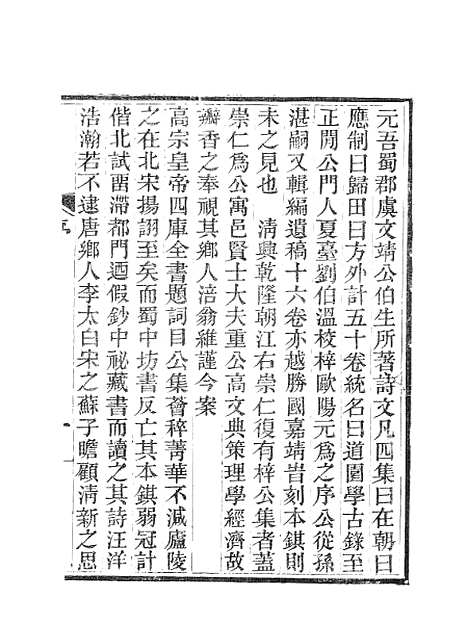 元吾蜀郡虞文靖公伯生所著詩文凡四集曰在朝曰
應制曰歸田曰方外計五十卷統名曰道園學古錄至
正閒公門人夏臺劉伯溫校梓歐陽元爲之序公從孫
湛嗣又輯編遺稿十六卷亦越勝國嘉靖旹刻本錤則
未之見也　清興乾隆朝江右崇仁復有梓公集者蓋
崇仁爲公寓邑賢士大夫重公高文典策理學經濟故
瓣香之奉視其鄉人涪翁維謹今案
高宗皇帝四庫全書題詞目公集薈稡菁華不減廬陵
之在北宋揚詡至矣而蜀中坊書反亡其本錤弱冠計
偕北試畱滯都門迺假鈔中祕藏書而讀之其詩汪洋
浩瀚若不逮唐鄉人李太白宋之蘇子瞻顧清新之思
序
一